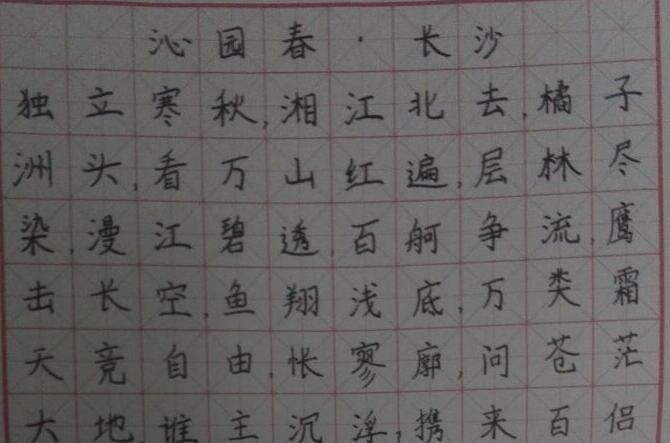 沁园春·长沙
独立寒秋,湘江北去,橘子
洲头,看万山红遍,层林尽
染,漫江碧透,百舸争流,鹰
击长空,鱼翔浅底,万类霜
天竞自由,怅寥廓,问苍茫
大地,谁主沉浮,携来百侣